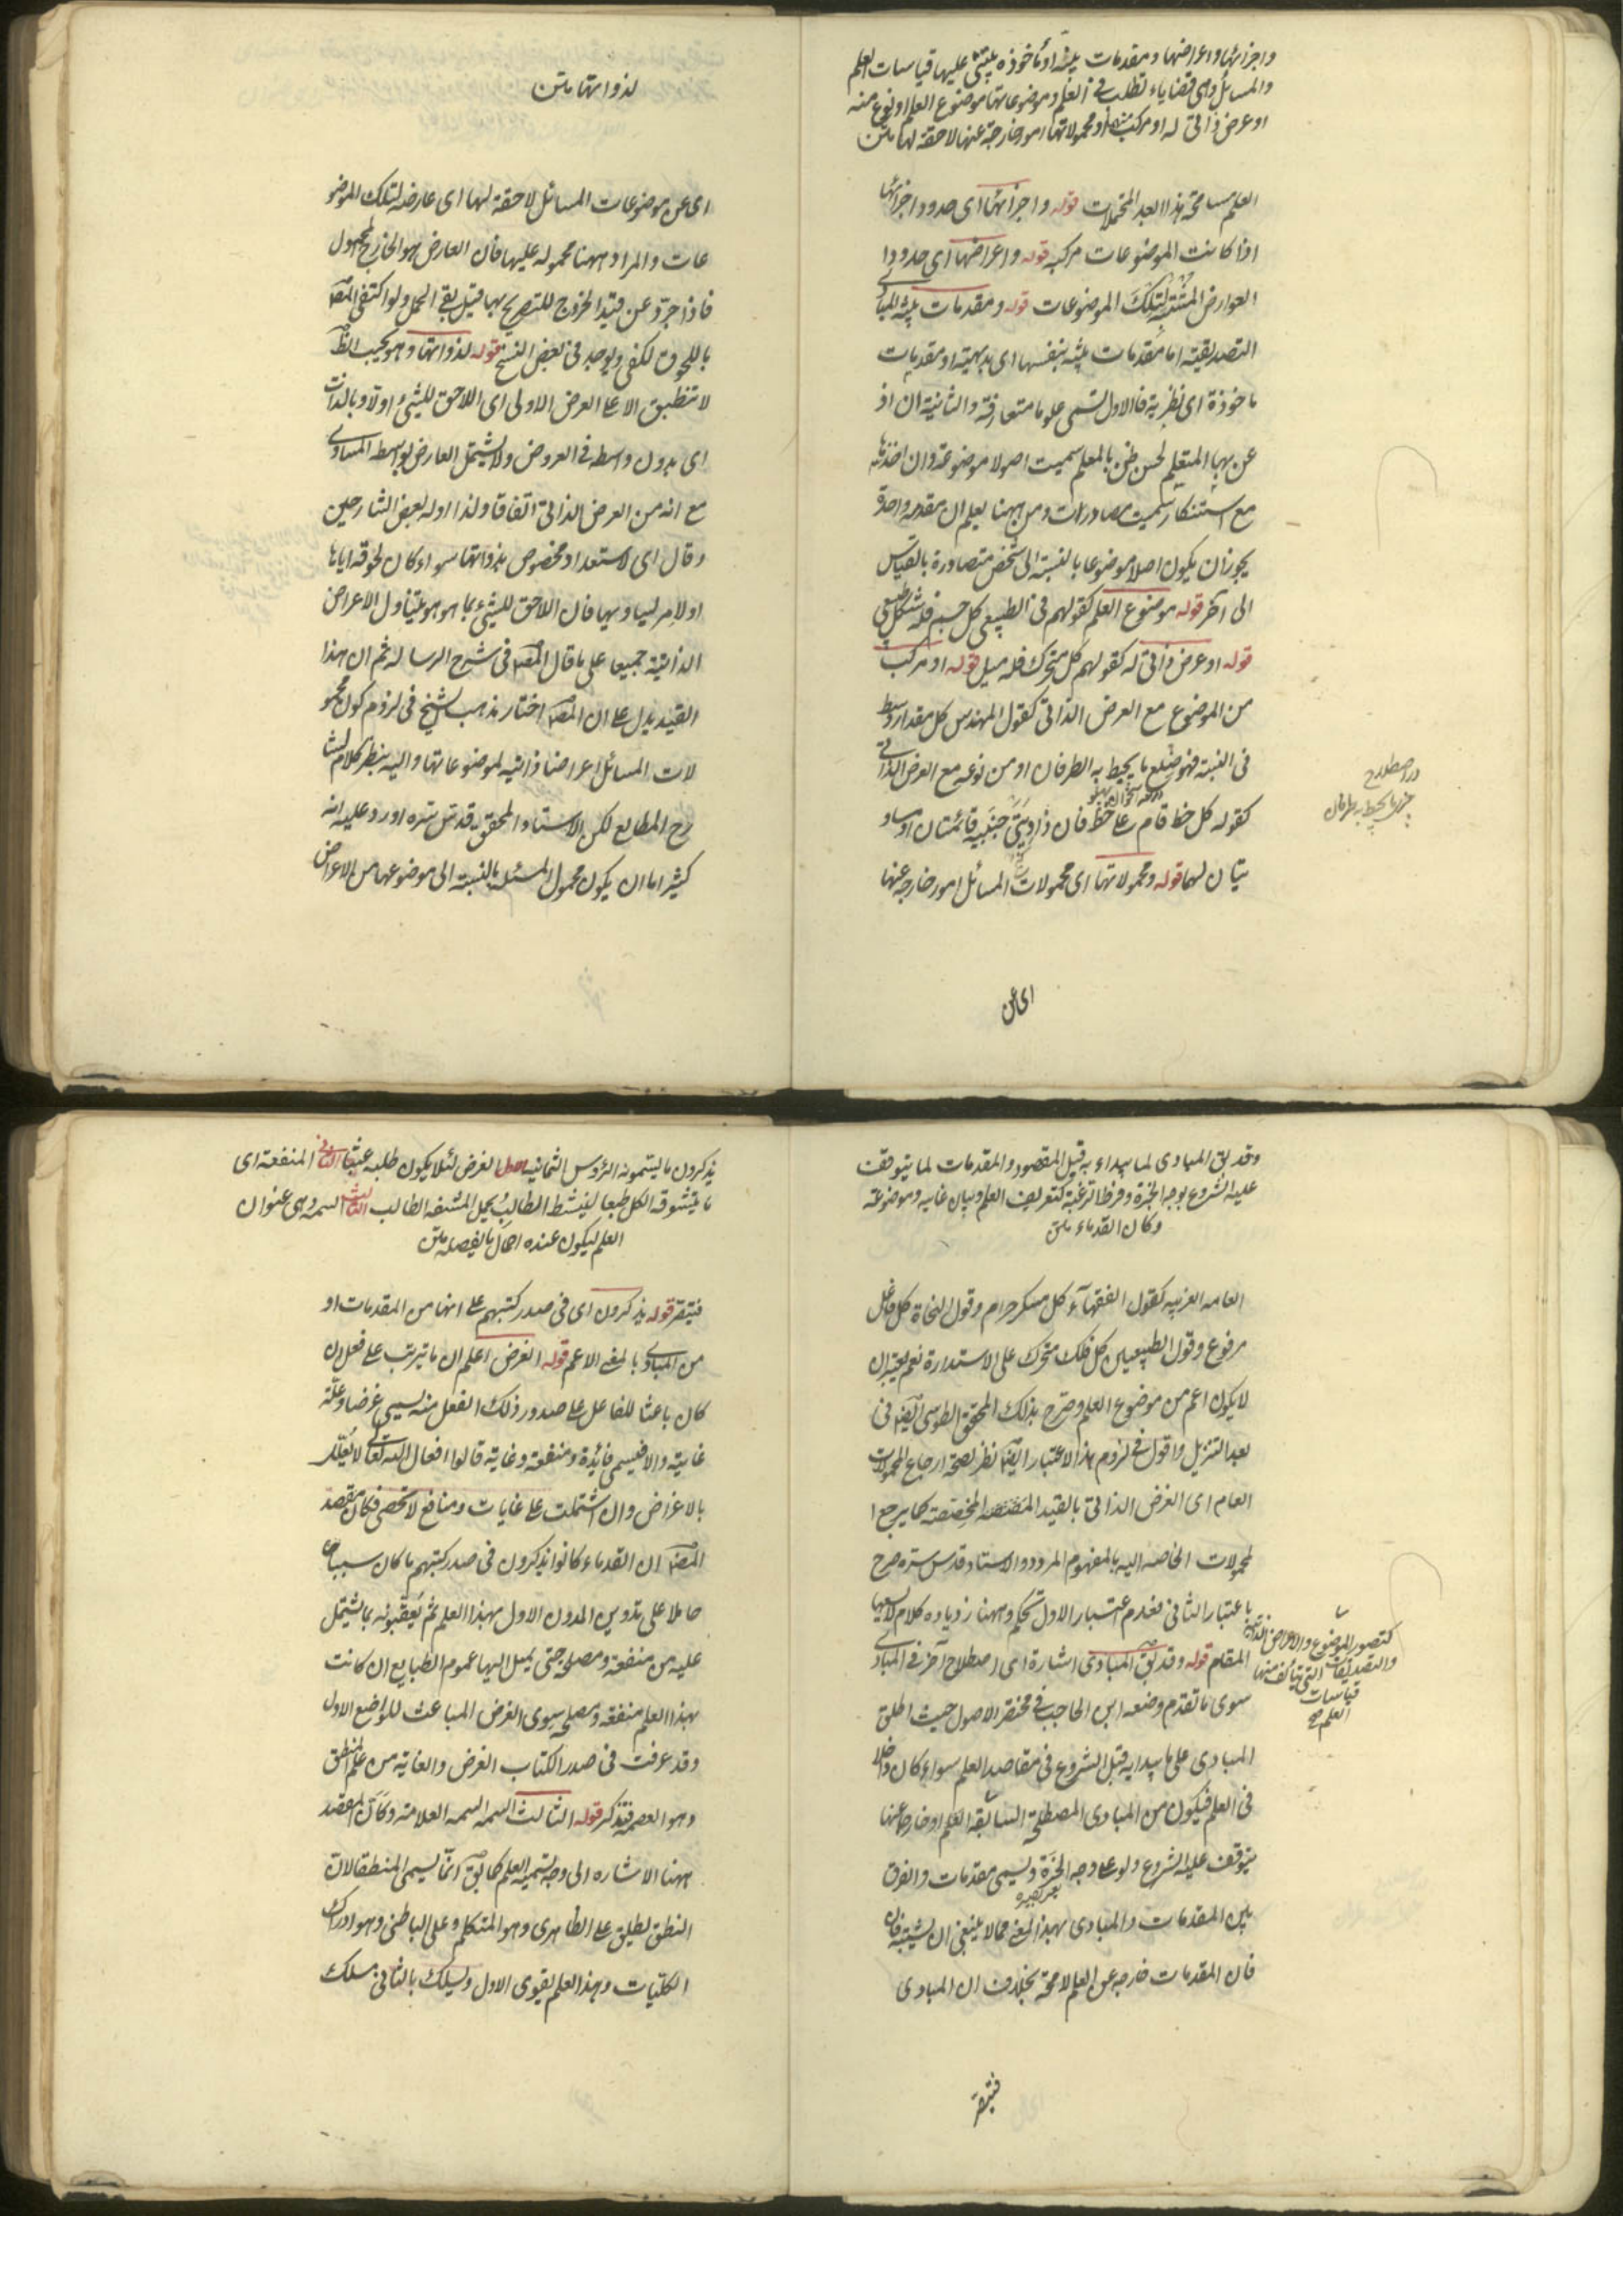 واجزائها واعراضها ومقدمات بينة او مأخوذة يبتنى عليها قياسات العلم
والمسائل وهى قضاياء تطلب فى العلم وموضوعاتها موضوع العلم او نوع منه
او عرض ذاتى له او مركب ومحمولاتها امور خارجة عنها لاحقة لها متن
العلم مسامحة هذا العبد المتحملات قوله واجزائها اى حدود اجزائها
اذا كانت الموضوعات مركبه قوله واعراضها اى حدودا
العوارض المثبتة لتلك الموضوعات قوله ومقدمات بينة المبادى
التصديقية اما مقدمات بينة بنفسها اى بديهية او مقدمات
ماخوذة اى نظرية فالاول تسمى علوما متعارفة والثانية ان اذ
عن بها المتعلم لحسن ظن بالمعلم سميت اصولا موضوعة وان اخذها
مع استنكار سميت مصادرات ومن ههنا يعلم ان مقدمه واحدة
يجوز ان يكون اصلا موضوعا بالنسبة الى شخص متصادرة بالقياس
الى آخر قوله موضوع العلم كقولهم فى الطبيعى كل جسم فله شكل طبيعى
قوله او عرض ذاتى له كقولهم كل متحرك فله ميل قوله او مركب
من الموضوع مع العرض الذاتى كقول المهندس كل مقدار وسط
فى النسبة فهو ضلع ما يحيط به الطرفان او من نوعه مع العرض الذاتى
كقوله كل خط قام على خط فان زاويتى جنبيه قائمتان او مساو
يتان لهما قوله ومحمولاتها اى محمولات المسائل امور خارجه عنها
در اصطلاح
اى عن
لذواتها متن
اى عن موضوعات المسائل لاحقة لها اى عارضه لتلك الموضو
عات والمراد ههنا محموله عليها فان العارض هو الخارج المحمول
فاذا جرد عن قيد الخروج للتصريح بها قيل بقى الحمل ولو اكتفى المص
باللحوق لكفى ويوجد فى بعض النسخ قوله لذواتها وهو بحسب الظ
لا تنطبق الا على العرض الاولى اى اللاحق للشئ اولا وبالذات
اى بدون واسطه فى العروض ولا يشتمل العارض بواسطه المساوى
مع انه من العرض الذاتى اتفاقا ولذا اوله بعض الشارحين
وقال اى لاستعداد مخصوص بذواتها سواء كان لحوقه اياها
اولامر يساويها فان اللاحق للشئ بما هو هو يتناول الاعراض
الذاتية جميعا على ما قال المص فى شرح الرساله ثم ان هذا
القيد يدل على ان المص اختار مذهب الشيخ فى لزوم كون محمو
لات المسائل اعراضا ذاتيه لموضوعاتها واليه ينظر كلام شا
رح المطالع لكن الاستاد المحقق قدس سره اورد عليه انه
كثيرا ما ان يكون محمول المسئله بالنسبة الى موضوعها من الاعراض
وقد يق المبادى لما يبداء به قبل المقصود والمقدمات لما يتوقف
عليه الشروع بوجه الخبرة وفرط الرغبة كتعريف العلم وبيان غايته وموضوعه
وكان القدماء متن
العامه الغريبه كقول الفقهاء كل مسكر حرام وقول النحاة كل فاعل
مرفوع وقول الطبيعيين كل فلك متحرك على الاستدارة نعم يعتبر ان
لا يكون اعم من موضوع العلم وصرح بذلك المحقق الطوسى ايضا فى
بعد التنزيل واقول فى لزوم هذا الاعتبار ايضا نظر لصحة ارجاع المحمولات
العام اى العرض الذاتى بالقيد المخصصة كما يرجع ا
لمحمولات الخاصه اليه بالمفهوم المردد والاستاد قدس سره صرح
باعتبار الثانى فعدم اعتبار الاول تحكم وههنا زياده كلام لا يسعها
المقام قوله وقد يق المبادى اشارة الى اصطلاح آخر فى المبادى
سوى ما تقدم وضعه ابن الحاجب فى مختصر الاصول حيث اطلق
المبادى على ما يبدا به قبل الشروع فى مقاصد العلم سواء كان داخلا
فى العلم فيكون من المبادى المصطلحة السابقة العلم او خارجا عنها
يتوقف عليه الشروع ولو على وجه الخبرة ويسمى مقدمات والفرق
بين المقدمات والمبادى بهذا المعنى مما لا ينبغى ان يشتبه فان
فان المقدمات خارجه عن العلم لا محة بخلاف ان المبادى
كتصور الموضوع والاعراض الذاتية
والتصديقات التى يتألف منها
قياسات
العلم صح
فتبصر
يذكرون ما يسمونه الرؤس الثمانيه الاول الغرض لئلا يكون طلبه عبثا الثانى المنفعة اى
ما يتشوقه الكل طبعا لينشط الطالب يحمل المشقه الطالب الثالث السمه وهى عنوان
العلم ليكون عنده اجمال ما يفصله متن
فتبصر قوله يذكرون اى فى صدر كتبهم على انها من المقدمات او
من المبادى بالمعنى الاعم قوله الغرض اعلم ان ما يترتب على فعل ان
كان باعثا للفاعل على صدور ذلك الفعل منه يسمى غرضا وعلة
غايية والا فيسمى فائدة ومنفعة وغاية قالوا افعال الله تعالى لا يعلل
بالاغراض وان اشتملت على غايات ومنافع لا تحصى فكان مقصد
المص ان القدماء كانوا يذكرون فى صدر كتبهم ما كان سببا
حاملا على تدوين المدون الاول بهذا العلم ثم يعقبونه بما يشتمل
عليه من منفعة ومصلحة حتى يميل اليها عموم الطبايع ان كانت
بهذا العلم منفعه ومصلحه سوى الغرض الباعث للواضع الاول
وقد عرفت فى صدر الكتاب الغرض والغاية من علم المنطق
وهو العصمه فتذكر قوله الثالث السمه السمه العلامة وكأن المقصد
ههنا الاشاره الى وجه تسميه العلم كما يق انما يسمى المنطق لان
النطق يطلق على الظاهرى وهو التكلم وعلى الباطنى وهو ادراك
الكليات وبهذا العلم يقوى الاول ويسلك بالثانى مسلك